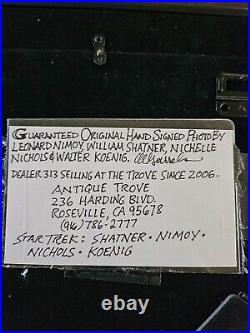 GUARANTEED ORIGINAL HAND SIGNED PHOTO BY
LEONARD NIMOY, WILLIAM SHATNER, NICHELLE
NICHOLS & WALTER KOENIG.
DEALER 313 SELLING AT THE TROVE SINCE 2006.
ANTIQUE TROVE
236 HARDING BLVD.
ROSEVILLE, CA 95678
(916) 786-2777
STAR TREK: SHATNER · NIMOY ·
NICHOLS · KOENIG